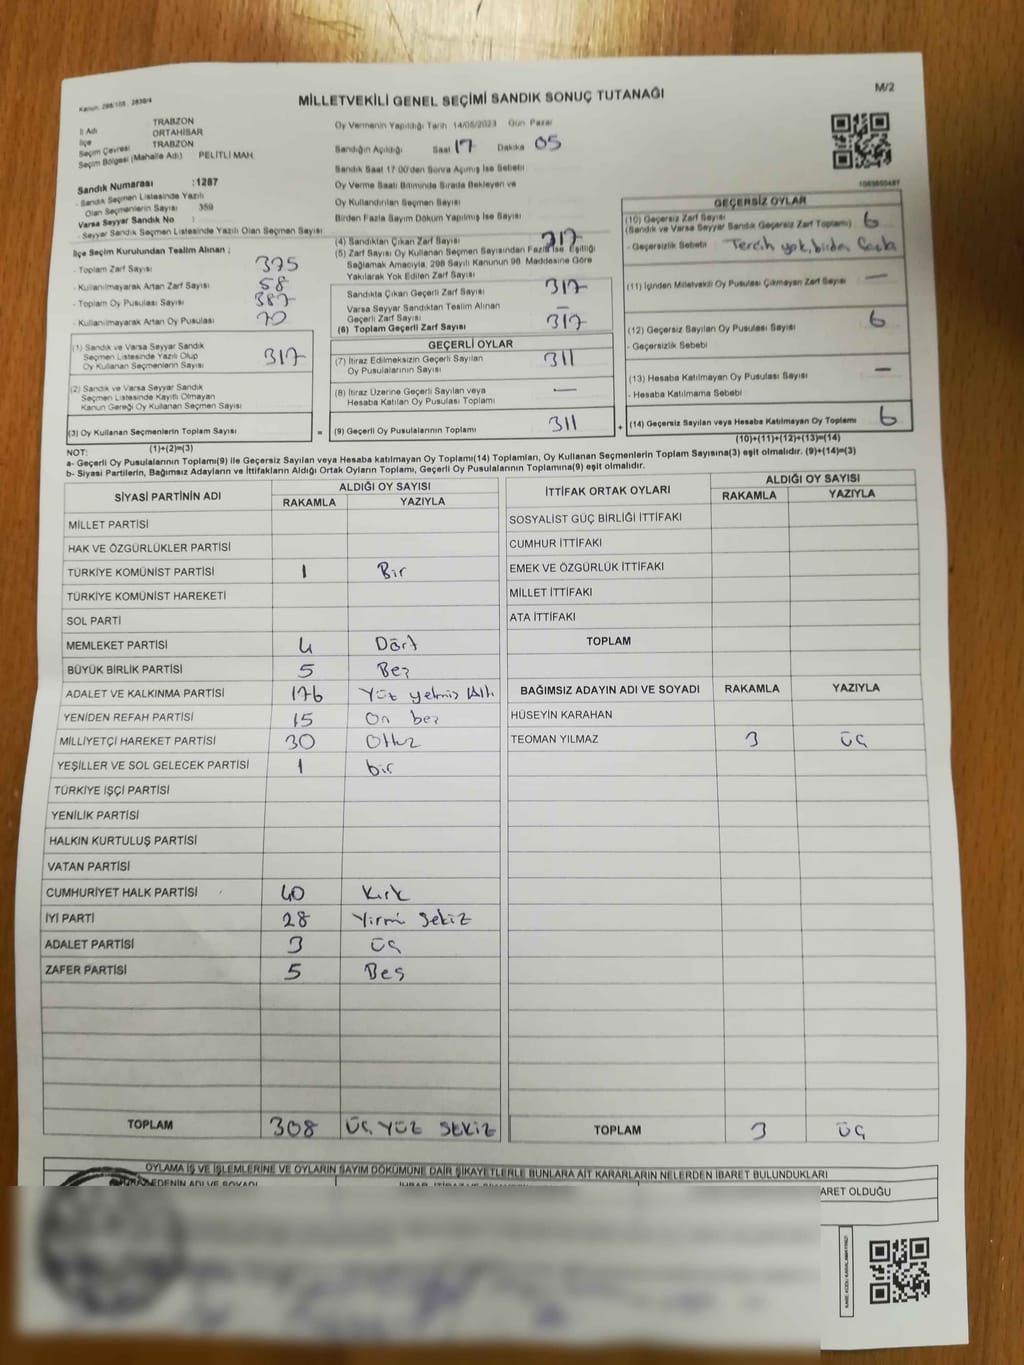 Kanun, 298/105, 2839/4
MİLLETVEKİLİ GENEL SEÇİMİ SANDIK SONUÇ TUTANAĞI
M/2
İl Adı TRABZON
İlçe ORTAHİSAR
Seçim Çevresi TRABZON
Seçim Bölgesi (Mahalle Adı) PELİTLİ MAH.
Sandık Numarası :1287
- Sandık Seçmen Listesinde Yazılı
Olan Seçmenlerin Sayısı 359
Varsa Seyyar Sandık No :
- Seyyar Sandık Seçmen Listesinde Yazılı Olan Seçmen Sayısı
İlçe Seçim Kurulundan Teslim Alınan ;
- Toplam Zarf Sayısı 375
- Kullanılmayarak Artan Zarf Sayısı 58
- Toplam Oy Pusulası Sayısı 387
- Kullanılmayarak Artan Oy Pusulası 70
(1) Sandık ve Varsa Seyyar Sandık
Seçmen Listesinde Yazılı Olup
Oy Kullanan Seçmenlerin Sayısı 317
(2) Sandık ve Varsa Seyyar Sandık
Seçmen Listesinde Kayıtlı Olmayan
Kanun Gereği Oy Kullanan Seçmen Sayısı
(3) Oy Kullanan Seçmenlerin Toplam Sayısı
(1)+(2)=(3)
Oy Vermenin Yapıldığı Tarih 14/05/2023 Gün Pazar
Sandığın Açıldığı Saat 17 Dakika 05
Sandık Saat 17:00'den Sonra Açmış İse Sebebi
Oy Verme Saati Bitiminde Sırada Bekleyen ve
Oy Kullandırılan Seçmen Sayısı
Birden Fazla Sayım Döküm Yapılmış İse Sayısı
(4) Sandıktan Çıkan Zarf Sayısı 317
(5) Zarf Sayısı Oy Kullanan Seçmen Sayısından Fazla İse Eşitliği
Sağlamak Amacıyla, 298 Sayılı Kanunun 98. Maddesine Göre
Yakılarak Yok Edilen Zarf Sayısı
Sandıkta Çıkan Geçerli Zarf Sayısı 317
Varsa Seyyar Sandıktan Teslim Alınan
Geçerli Zarf Sayısı —
(6) Toplam Geçerli Zarf Sayısı 317
GEÇERLİ OYLAR
(7) İtiraz Edilmeksizin Geçerli Sayılan
Oy Pusulalarının Sayısı 311
(8) İtiraz Üzerine Geçerli Sayılan veya
Hesaba Katılan Oy Pusulası Toplamı —
= (9) Geçerli Oy Pusulalarının Toplamı 311 +
GEÇERSİZ OYLAR
(10) Geçersiz Zarf Sayısı
(Sandık ve Varsa Seyyar Sandık Geçersiz Zarf Toplamı) 6
- Geçersizlik Sebebi Tercih yok, birden fazla
(11) İçinden Milletvekili Oy Pusulası Çıkmayan Zarf Sayısı —
(12) Geçersiz Sayılan Oy Pusulası Sayısı 6
- Geçersizlik Sebebi
(13) Hesaba Katılmayan Oy Pusulası Sayısı —
- Hesaba Katılmama Sebebi
(14) Geçersiz Sayılan veya Hesaba Katılmayan Oy Toplamı 6
(10)+(11)+(12)+(13)=(14)
NOT:
a- Geçerli Oy Pusulalarının Toplamı(9) ile Geçersiz Sayılan veya Hesaba Katılmayan Oy Toplamı(14) Toplamları, Oy Kullanan Seçmenlerin Toplam Sayısına(3) eşit olmalıdır. (9)+(14)=(3)
b- Siyasi Partilerin, Bağımsız Adayların ve İttifakların Aldığı Ortak Oyların Toplamı, Geçerli Oy Pusulalarının Toplamına(9) eşit olmalıdır.
SİYASİ PARTİNİN ADI ALDIĞI OY SAYISI
RAKAMLA YAZIYLA
MİLLET PARTİSİ
HAK VE ÖZGÜRLÜKLER PARTİSİ
TÜRKİYE KOMÜNİST PARTİSİ 1 Bir
TÜRKİYE KOMÜNİST HAREKETİ
SOL PARTİ
MEMLEKET PARTİSİ 4 Dört
BÜYÜK BİRLİK PARTİSİ 5 Beş
ADALET VE KALKINMA PARTİSİ 176 Yüz yetmiş Altı
YENİDEN REFAH PARTİSİ 15 On beş
MİLLİYETÇİ HAREKET PARTİSİ 30 Otuz
YEŞİLLER VE SOL GELECEK PARTİSİ 1 bir
TÜRKİYE İŞÇİ PARTİSİ
YENİLİK PARTİSİ
HALKIN KURTULUŞ PARTİSİ
VATAN PARTİSİ
CUMHURİYET HALK PARTİSİ 40 Kırk
İYİ PARTİ 28 Yirmi sekiz
ADALET PARTİSİ 3 Üç
ZAFER PARTİSİ 5 Beş
TOPLAM 308 ÜÇ YÜZ SEKİZ
İTTİFAK ORTAK OYLARI ALDIĞI OY SAYISI
RAKAMLA YAZIYLA
SOSYALİST GÜÇ BİRLİĞİ İTTİFAKI
CUMHUR İTTİFAKI
EMEK VE ÖZGÜRLÜK İTTİFAKI
MİLLET İTTİFAKI
ATA İTTİFAKI
TOPLAM
BAĞIMSIZ ADAYIN ADI VE SOYADI RAKAMLA YAZIYLA
HÜSEYİN KARAHAN
TEOMAN YILMAZ 3 ÜÇ
TOPLAM 3 ÜÇ
OYLAMA İŞ VE İŞLEMLERİNE VE OYLARIN SAYIM DÖKÜMÜNE DAİR ŞİKAYETLERLE BUNLARA AİT KARARLARIN NELERDEN İBARET BULUNDUKLARI
ARET OLDUĞU